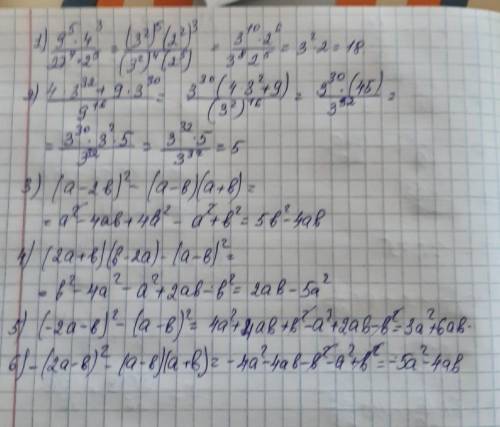 1) 9⁵·4³/27⁴·2⁵ = (3²)⁵(2²)³/(3²)⁴(2⁵) = 3¹⁰·2⁶/3⁸2⁵ = 3²·2 = 18
2) 4·3³²+9·3³⁰/9¹⁶ = 3³⁰(4·3²+9)/(3²)¹⁶ = 3³⁰·(45)/3³² =
= 3³⁰·3²·5/3³² = 3³²·5/3³² = 5
3) (a-2b)² - (a-b)(a+b) =
= a² - 4ab + 4b² - a² + b² = 5b² - 4ab
4) (2a+b)(b-2a) - (a-b)² =
= b² - 4a² - a² + 2ab - b² = 2ab - 5a²
5) (-2a-b)² - (a-b)² = 4a² + 4ab + b² - a² + 2ab - b² = 3a² + 6ab.
6) -(2a-b)² - (a-b)(a+b) = -4a² - 4ab - b² - a² + b² = -5a² - 4ab